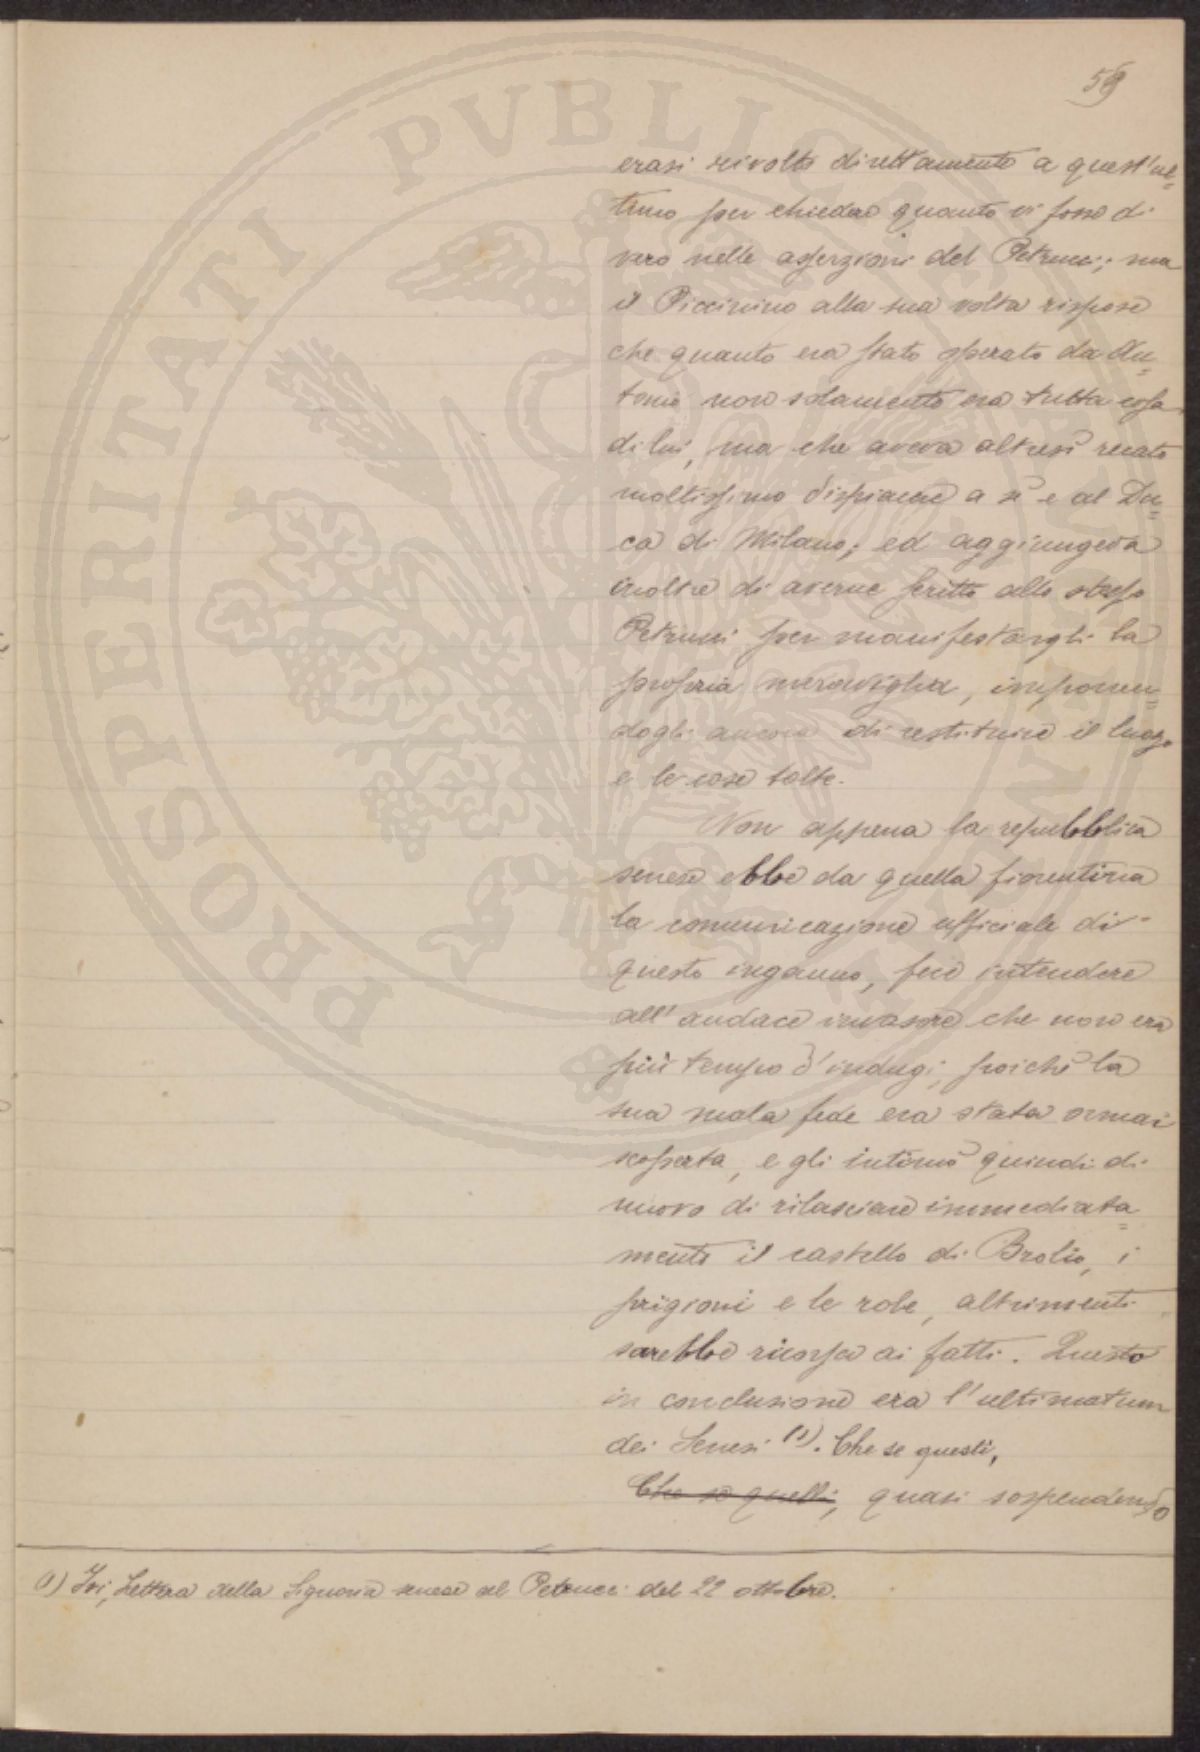 59
erasi rivolto direttamente a quest'ul=
timo per chiedere quanto vi fosse di
vero nelle asserzioni del Petrucci; ma
il Piccinino alla sua volta rispose
che quanto era stato operato da An=
tonio non solamente era tutta cosa
di lui, ma che aveva altresì recato
moltissimo dispiacere a sè e al Du=
ca di Milano; ed aggiungeva
inoltre di averne scritto allo stesso
Petrucci per manifestargli la
propria meraviglia, imponen=
dogli ancora di restituire il luogo
e le cose tolte.
Non appena la repubblica
senese ebbe da quella fiorentina
la comunicazione ufficiale di
questo inganno, fece intendere
all'audace invasore che non era
più tempo d'indugi, poichè la
sua mala fede era stata ormai
scoperta, e gli intimò quindi di
nuovo di rilasciare immediata=
mente il castello di Brolio, i
prigioni e le robe, altrimenti
sarebbe ricorsa ai fatti. Questo
in conclusione era l'ultimatum
dei Senesi (1). Che se questi,
Che se quelli, quasi sospendendo
(1) Ivi, Lettera della Signoria senese al Petrucci del 22 ottobre.
PROSPERITATI PVBLICAE